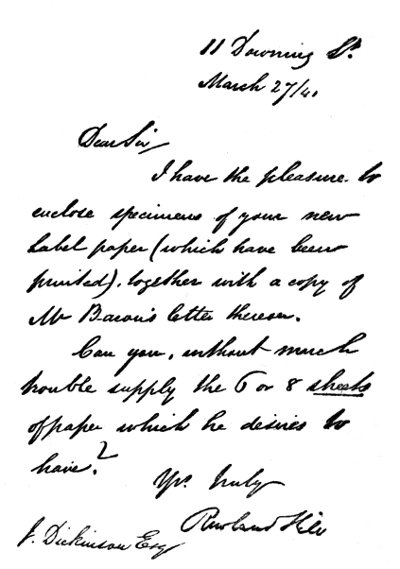 11 Downing St.
March 27/41
Dear Sir
I have the pleasure to
enclose specimens of your new
Label paper (which have been
printed), together with a copy of
Mr Bacon's letter thereon.
Can you, without much
trouble supply the 6 or 8 sheets
of paper which he desires to
have?
Yrs. truly
Rowland Hill
J. Dickinson Esq